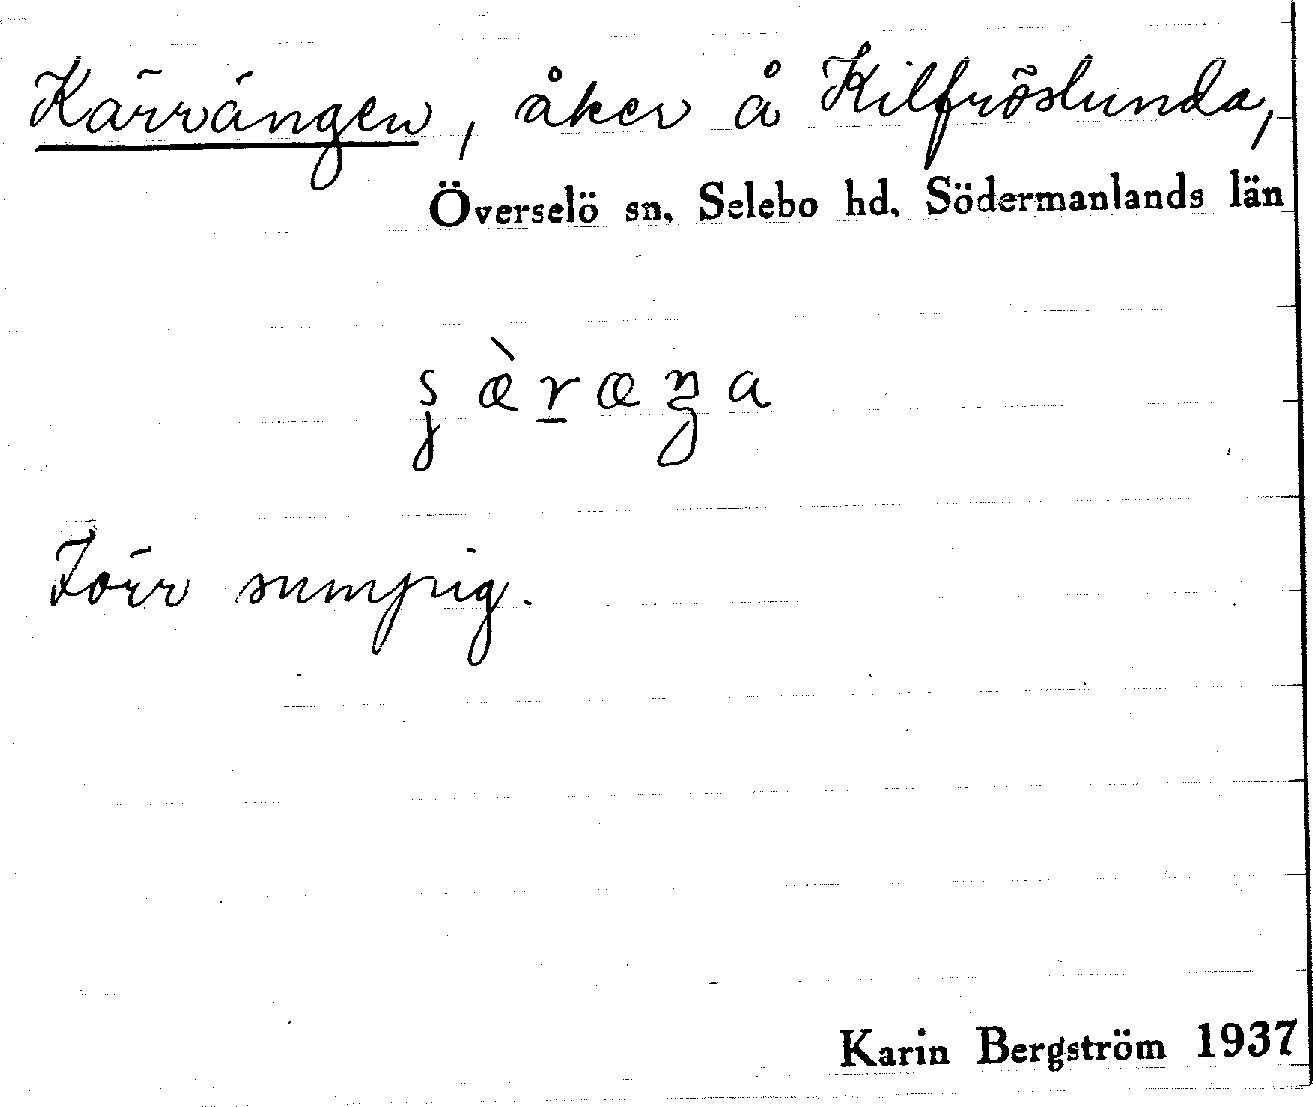 Kärrängen, åker å Kilfröslunda,
Överselö sn, Selebo hd, Södermanlands län
Förr sumpig.
Karin Bergström 1937